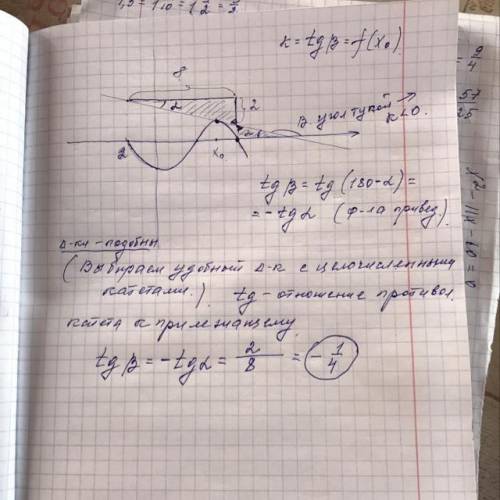 1,5 = 1 5/10 = 1 1/2 = 3/2
k = tg β = f(x₀)
8
2
2
α
β - угол тупой
k < 0.
2
x₀
tg β = tg (180 - α) =
= - tg α (ф-ла привед.)
Δ-ки - подобны
(Выбираем удобный Δ-к с целочисленными
катетами.) tg - отношение противол.
катета к прилежащему.
tg β = - tg α = 2/8 = - 1/4
= 9/4
57
25